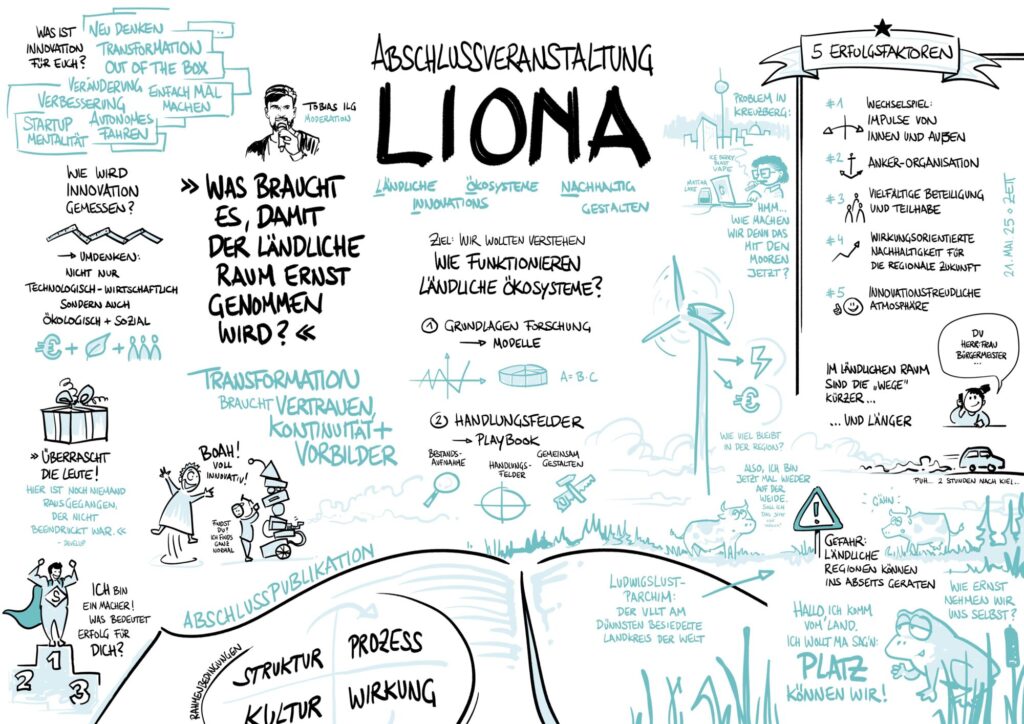 WAS IST
INNOVATION
FÜR EUCH?
NEU DENKEN
TRANSFORMATION
OUT OF THE BOX
VERÄNDERUNG
VERBESSERUNG
EINFACH MAL
MACHEN
STARTUP
MENTALITÄT
AUTONOMES
FAHREN
WIE WIRD
INNOVATION
GEMESSEN?
→ UMDENKEN:
NICHT NUR
TECHNOLOGISCH-WIRTSCHAFTLICH
SONDERN AUCH
ÖKOLOGISCH + SOZIAL
€ + +
» ÜBERRASCHT
DIE LEUTE!
HIER IST NOCH NIEMAND
RAUSGEGANGEN,
DER NICHT
BEEINDRUCKT WAR. «
S
1
2
3
ICH BIN
EIN MACHER!
WAS BEDEUTET
ERFOLG FÜR
DICH?
TOBIAS ILG
MODERATION
» WAS BRAUCHT
ES, DAMIT
DER LÄNDLICHE
RAUM ERNST
GENOMMEN
WIRD? «
TRANSFORMATION
BRAUCHT VERTRAUEN,
KONTINUITÄT +
VORBILDER
BOAH!
VOLL
INNOVATIV!
FINDST
DU?
ICH FINDS
GANZ
NORMAL
ABSCHLUSSVERANSTALTUNG
LIONA
LÄNDLICHE ÖKOSYSTEME NACHHALTIG
INNOVATIONS GESTALTEN
ZIEL: WIR WOLLTEN VERSTEHEN
WIE FUNKTIONIEREN
LÄNDLICHE ÖKOSYSTEME?
1 GRUNDLAGEN FORSCHUNG
→ MODELLE
A=B·C
2 HANDLUNGSFELDER
→ PLAYBOOK
BESTANDS-
AUFNAHME
HANDLUNGS-
FELDER
GEMEINSAM
GESTALTEN
ABSCHLUSSPUBLIKATION
RAHMENBEDINGUNGEN
STRUKTUR
PROZESS
KULTUR
WIRKUNG
PROBLEM IN
KREUZBERG:
ICE BERRY
BLAST
VAPE
MATCHA
LATTE
HMM...
WIE MACHEN
WIR DENN DAS
MIT DEN
MOOREN
JETZT?
€
WIE VIEL BLEIBT
IN DER REGION?
ALSO, ICH BIN
JETZT MAL WIEDER
AUF DER
WEIDE.
LUDWIGSLUST-
PARCHIM:
DER VLLT AM
DÜNNSTEN BESIEDELTE
LANDKREIS DER WELT
5 ERFOLGSFAKTOREN
#1 WECHSELSPIEL:
IMPULSE VON
INNEN UND AUßEN
#2 ANKER-ORGANISATION
#3 VIELFÄLTIGE BETEILIGUNG
UND TEILHABE
#4 WIRKUNGSORIENTIERTE
NACHHALTIGKEIT FÜR
DIE REGIONALE ZUKUNFT
#5 INNOVATIONSFREUDLICHE
ATMOSPHÄRE
DU
HERR·FRAU
BÜRGERMEISTER...
IM LÄNDLICHEN RAUM
SIND DIE „WEGE"
KÜRZER...
... UND LÄNGER
PUH... 2 STUNDEN NACH KIEL...
!
GEFAHR:
LÄNDLICHE
REGIONEN KÖNNEN
INS ABSEITS GERATEN
WIE ERNST
NEHMEN WIR
UNS SELBST?
HALLO, ICH KOMM
VOM LAND.
ICH WOLLT MA SAG'N:
PLATZ
KÖNNEN WIR!